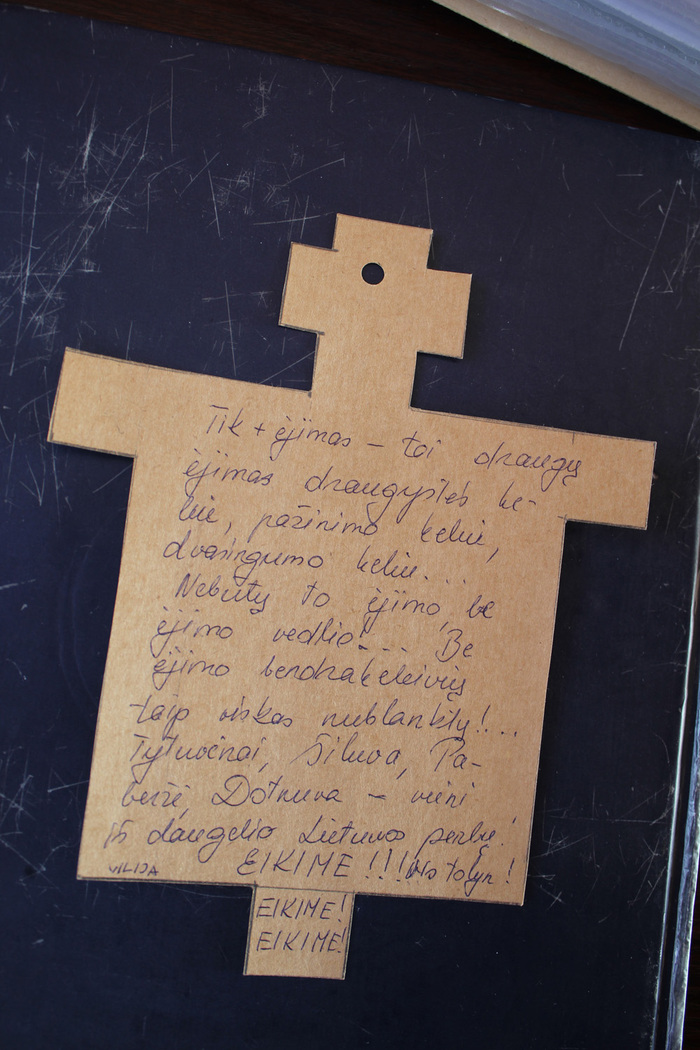 Tik + ėjimas – tai draugų
ėjimas draugystės ke-
liu, pažinimo keliu,
dvasingumo keliu...
Nebūtų to ėjimo, be
ėjimo vedlio!... Be
ėjimo bendrakeleivių
taip viskas nublanktų!...
Tytuvėnai, Šiluva, Pa-
beržė, Dotnuva – vieni
iš daugelio Lietuvos perlų!
VILIJA EIKIME!!! Vis tolyn!
EIKIME!
EIKIME!